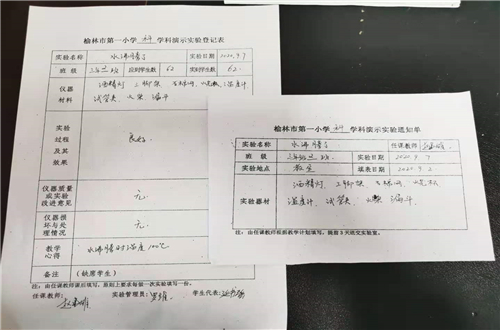 榆林市第一小学 科 学科演示实验登记表
实验名称 水沸腾了 实验日期 2020.9.7
班级 应到学生数 62 实到学生数 62.
仪器材料 酒精灯 三脚架 石棉网 烧杯 温度计
试管夹 火柴 漏斗
实验过程及其效果 良好.
仪器质量或实验改进意见 无.
仪器损坏与处理情况 无.
教学心得 水沸腾时温度100℃
备注 (缺席学生)
注：由任课教师课后填写，原则上要求每做一次实验填写一份。
任课教师： 实验管理员： 学生代表：
榆林市第一小学 科 学科演示实验通知单
实验名称 水沸腾了 任课教师
班级 实验日期 2020.9.7
实验地点 教室 填表日期 2020.9.2.
实验器材 酒精灯 三脚架 石棉网 烧杯
温度计 试管夹 火柴 漏斗
注：由任课教师根据教学计划填写，提前3天送交实验室。